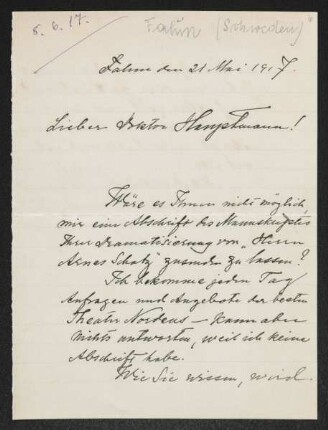 5. 6. 17.
Falun (Schweden)
Falun den 21 Mai 1917.
Lieber Doktor Hauptmann!
Wäre es Ihnen nicht möglich
mir eine Abschrift des Manuskriptes
Ihrer Dramatisierung von "Herrn
Arnes Schatz" zusenden zu lassen?
Ich bekomme jeden Tag
Anfragen und Angebote der besten
Theater Nordens – kann aber
nichts antworten, weil ich keine
Abschrift habe.
Wie Sie wissen, wird